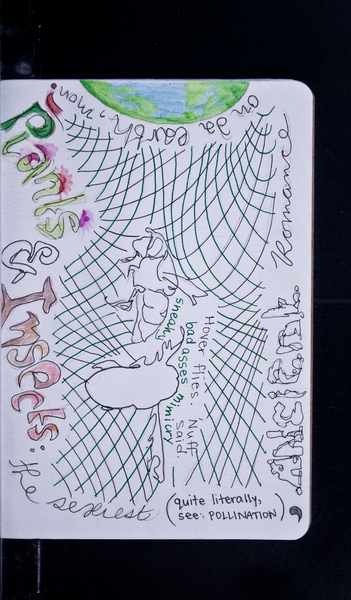 Plants
& Insects:
the sexiest
(quite literally,
see: POLLINATION),
Ancient
Romance
on da earth, mon!
Hover flies. Nuff
said.
bad asses mimicry
sneaky